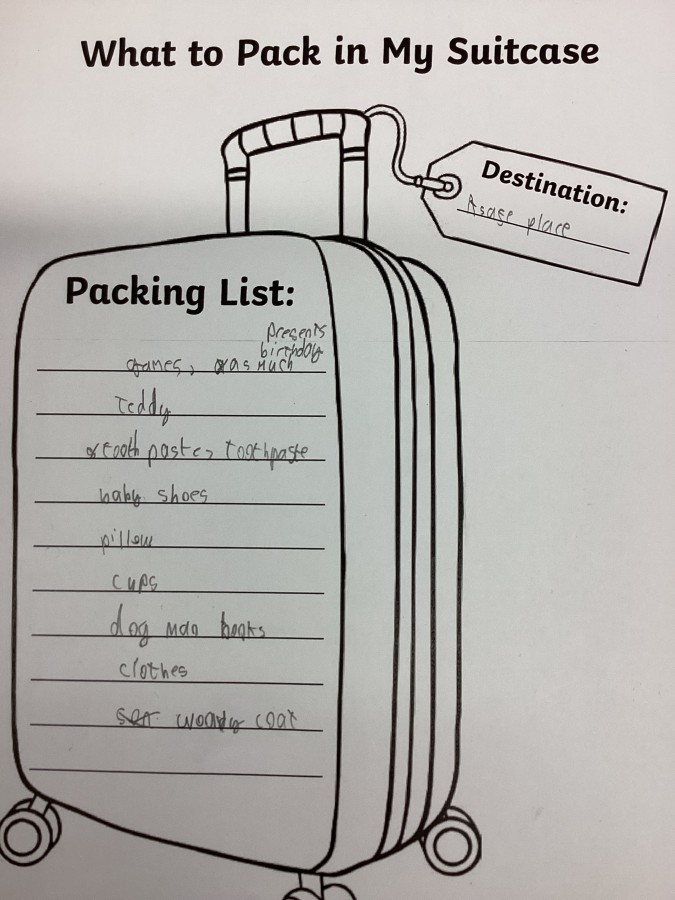 What to Pack in My Suitcase
Destination:
Asage place
Packing List:
presents
birthday
games, as much
Teddy
tooth paste, toothpaste
baby shoes
pillow
cups
dog man books
clothes
woody coat